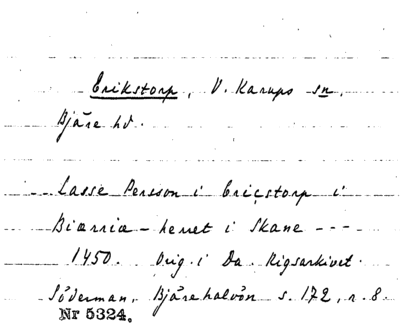 Erikstorp, V. Karups sn,
Bjäre hd.
Lasse Persson i Ericstorp i
Biærria - herret i Skane ---
1450. Orig. i Da. Rigsarkivet.
Söderman, Bjärehalvön s. 172, r. 8.
Nr 5324.